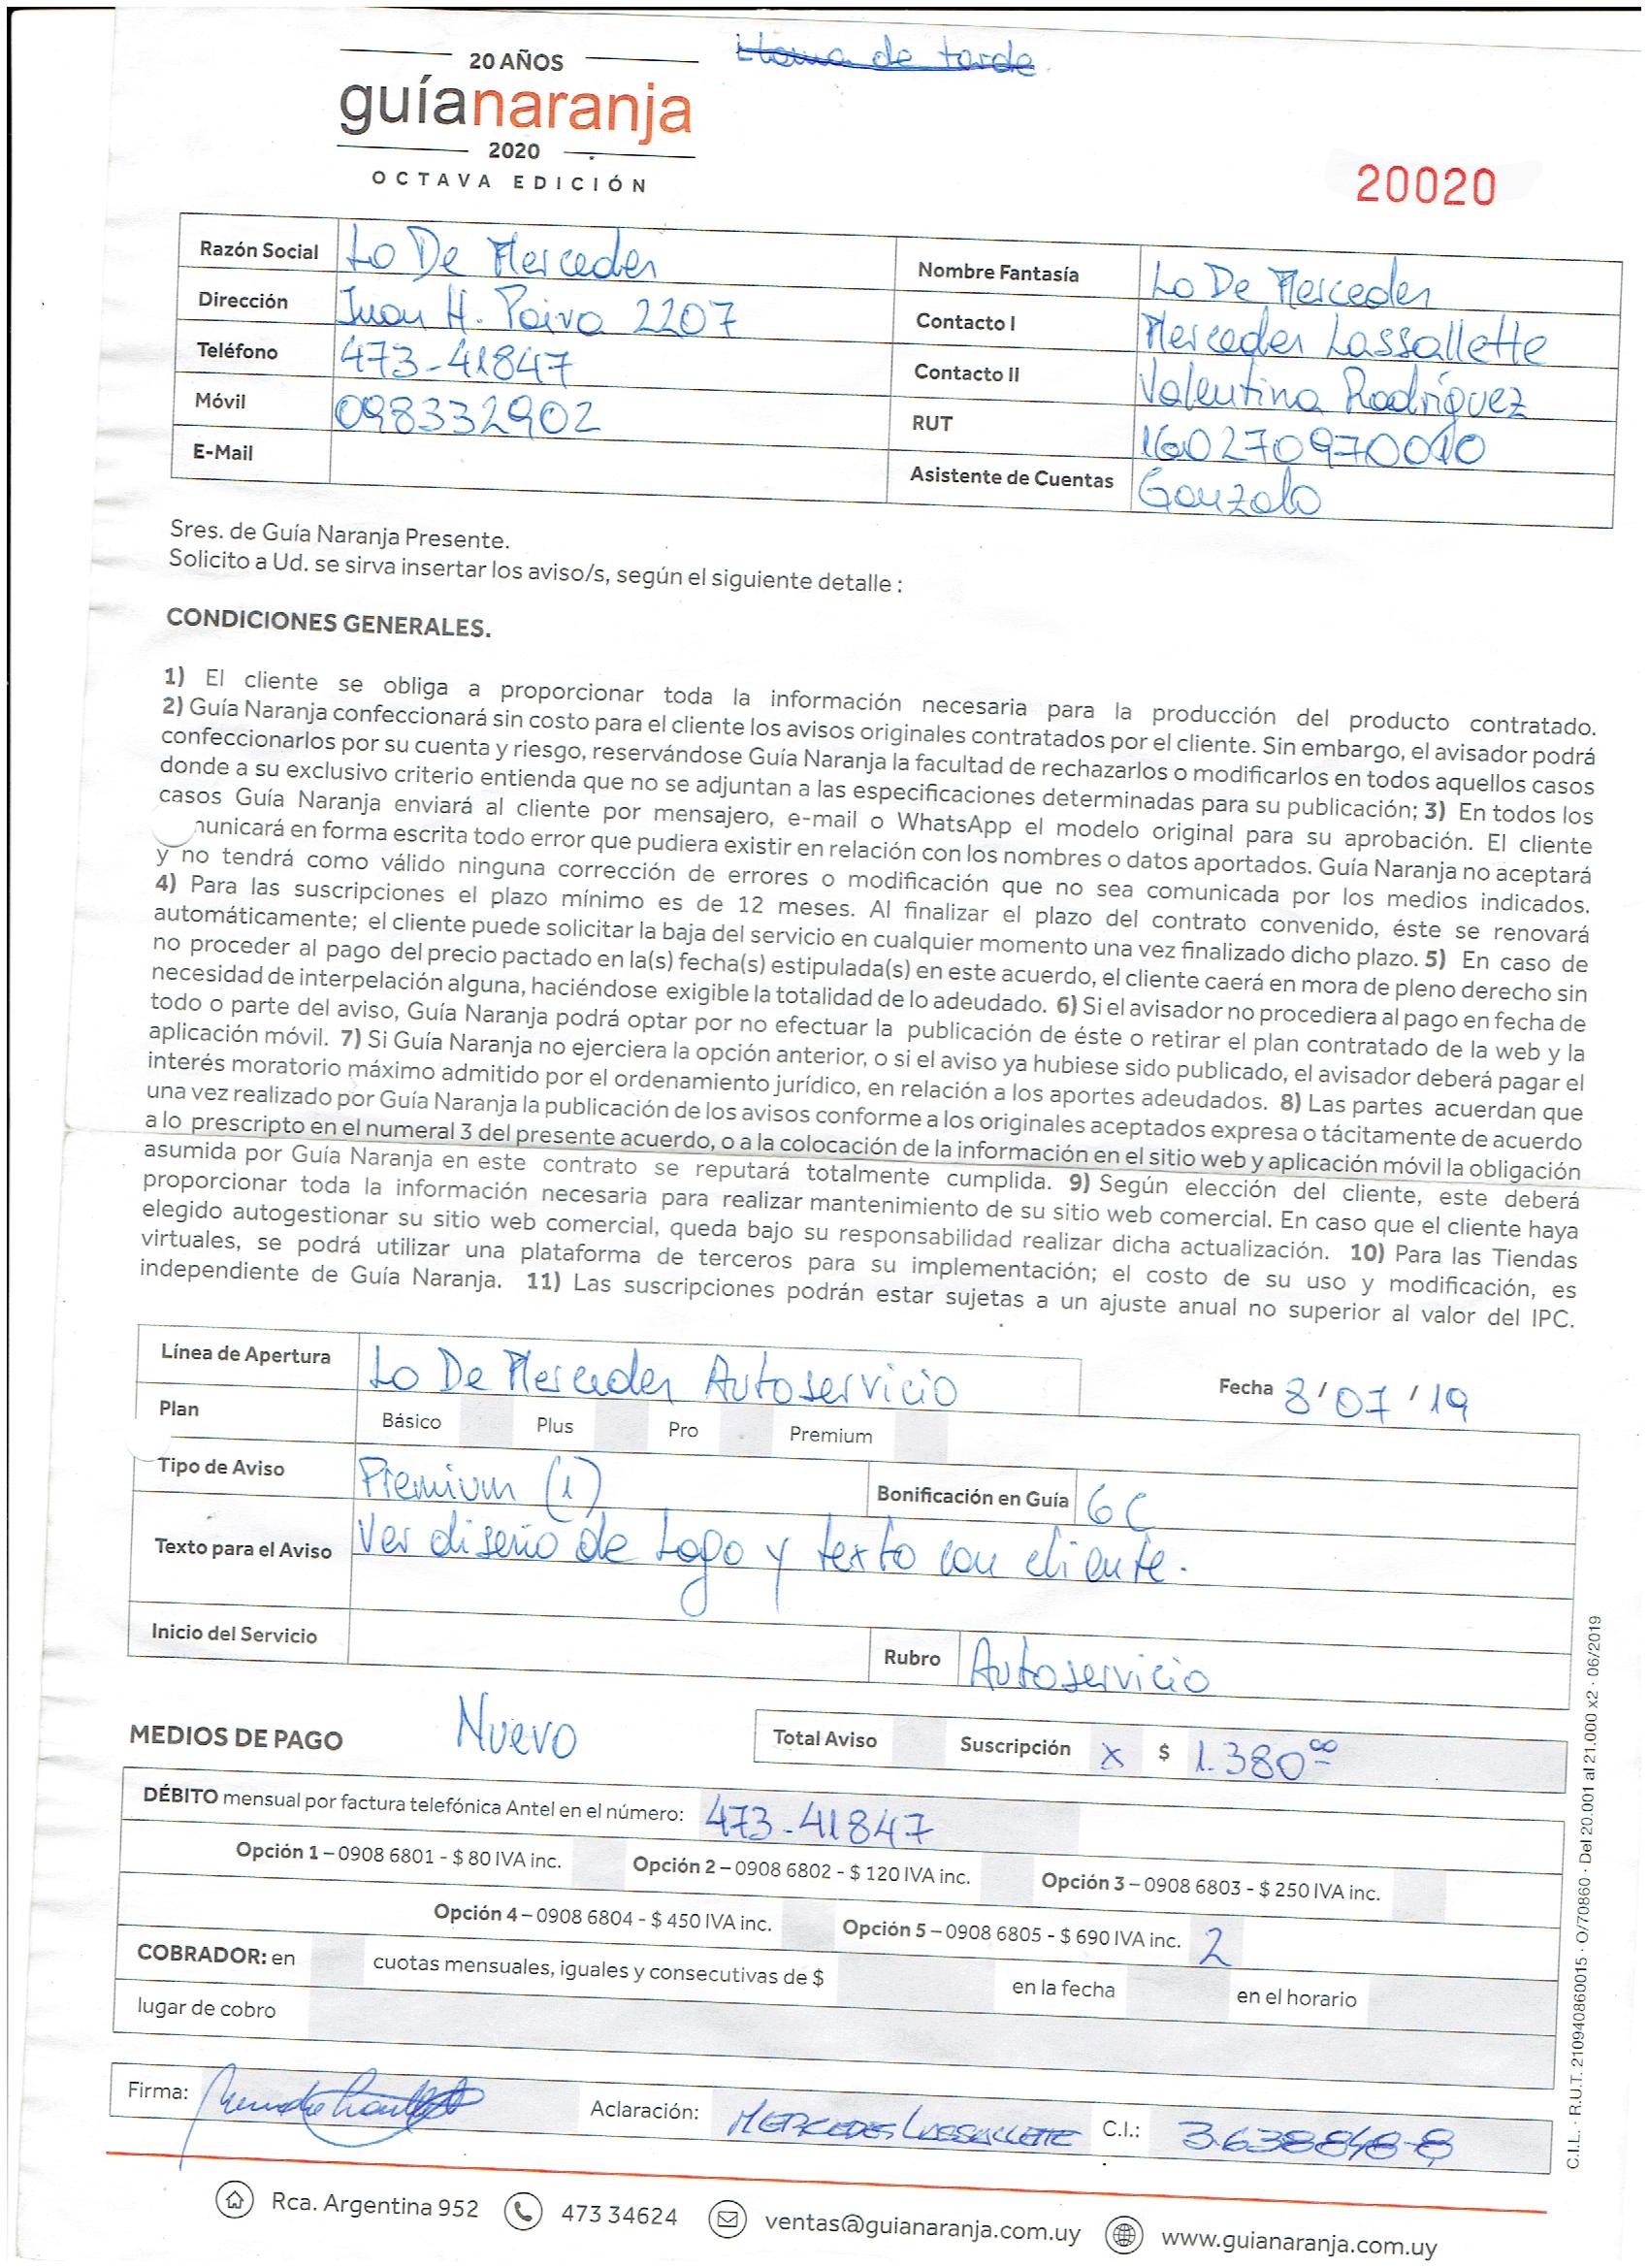 Llama de tarde.
20 AÑOS
guíanaranja
2020
OCTAVA EDICIÓN
20020
Razón Social Lo De Mercedes
Nombre Fantasía Lo De Mercedes
Dirección Juan H. Paiva 2207
Contacto I Mercedes Lassallette
Teléfono 473-41847
Contacto II Valentina Rodríguez
Móvil 098332902
RUT 160270970010
E-Mail
Asistente de Cuentas Gonzalo
Sres. de Guía Naranja Presente.
Solicito a Ud. se sirva insertar los aviso/s, según el siguiente detalle :
CONDICIONES GENERALES.
1) El cliente se obliga a proporcionar toda la información necesaria para la producción del producto contratado.
2) Guía Naranja confeccionará sin costo para el cliente los avisos originales contratados por el cliente. Sin embargo, el avisador podrá
confeccionarlos por su cuenta y riesgo, reservándose Guía Naranja la facultad de rechazarlos o modificarlos en todos aquellos casos
donde a su exclusivo criterio entienda que no se adjuntan a las especificaciones determinadas para su publicación; 3) En todos los
casos Guía Naranja enviará al cliente por mensajero, e-mail o WhatsApp el modelo original para su aprobación. El cliente
municará en forma escrita todo error que pudiera existir en relación con los nombres o datos aportados. Guía Naranja no aceptará
y no tendrá como válido ninguna corrección de errores o modificación que no sea comunicada por los medios indicados.
4) Para las suscripciones el plazo mínimo es de 12 meses. Al finalizar el plazo del contrato convenido, éste se renovará
automáticamente; el cliente puede solicitar la baja del servicio en cualquier momento una vez finalizado dicho plazo. 5) En caso de
no proceder al pago del precio pactado en la(s) fecha(s) estipulada(s) en este acuerdo, el cliente caerá en mora de pleno derecho sin
necesidad de interpelación alguna, haciéndose exigible la totalidad de lo adeudado. 6) Si el avisador no procediera al pago en fecha de
todo o parte del aviso, Guía Naranja podrá optar por no efectuar la publicación de éste o retirar el plan contratado de la web y la
aplicación móvil. 7) Si Guía Naranja no ejerciera la opción anterior, o si el aviso ya hubiese sido publicado, el avisador deberá pagar el
interés moratorio máximo admitido por el ordenamiento jurídico, en relación a los aportes adeudados. 8) Las partes acuerdan que
una vez realizado por Guía Naranja la publicación de los avisos conforme a los originales aceptados expresa o tácitamente de acuerdo
a lo prescripto en el numeral 3 del presente acuerdo, o a la colocación de la información en el sitio web y aplicación móvil la obligación
asumida por Guía Naranja en este contrato se reputará totalmente cumplida. 9) Según elección del cliente, este deberá
proporcionar toda la información necesaria para realizar mantenimiento de su sitio web comercial. En caso que el cliente haya
elegido autogestionar su sitio web comercial, queda bajo su responsabilidad realizar dicha actualización. 10) Para las Tiendas
virtuales, se podrá utilizar una plataforma de terceros para su implementación; el costo de su uso y modificación, es
independiente de Guía Naranja. 11) Las suscripciones podrán estar sujetas a un ajuste anual no superior al valor del IPC.
Línea de Apertura Lo De Mercedes Autoservicio
Fecha 8/07/19
Plan Básico Plus Pro Premium
Tipo de Aviso Premium (1)
Bonificación en Guía 6C
Texto para el Aviso Ver diseño de Logo y texto con cliente.
Inicio del Servicio
Rubro Autoservicio
MEDIOS DE PAGO Nuevo
Total Aviso Suscripción x $ 1.380 00
DÉBITO mensual por factura telefónica Antel en el número: 473-41847
Opción 1 – 0908 6801 - $ 80 IVA inc. Opción 2 – 0908 6802 - $ 120 IVA inc. Opción 3 – 0908 6803 - $ 250 IVA inc.
Opción 4 – 0908 6804 - $ 450 IVA inc. Opción 5 – 0908 6805 - $ 690 IVA inc. 2
COBRADOR: en cuotas mensuales, iguales y consecutivas de $ en la fecha en el horario
lugar de cobro
Firma: Aclaración: MERCEDES LASSALLETTE C.I.: 3.638848-8
Rca. Argentina 952 473 34624 ventas@guianaranja.com.uy www.guianaranja.com.uy
C.I.L. · R.U.T. 210940860015 · O/70860 · Del 20.001 al 21.000 x2 · 06/2019